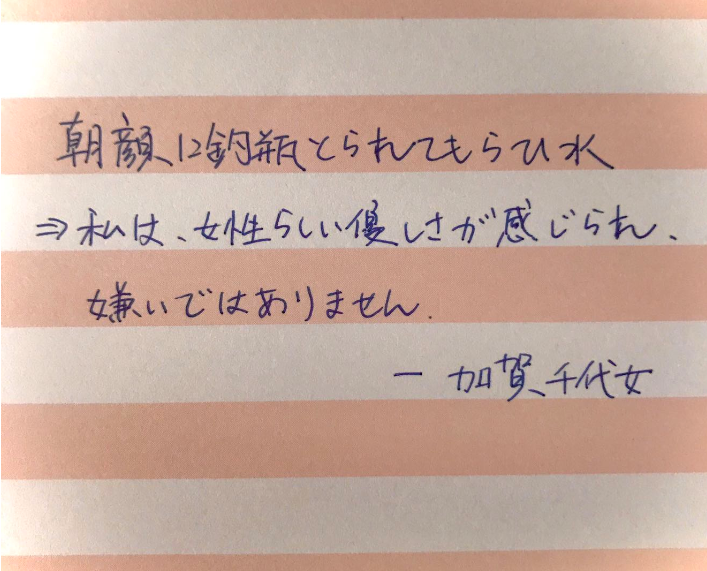 朝顔に釣瓶とられてもらひ水
⇒私は、女性らしい優しさが感じられ、
嫌いではありません.
― 加賀千代女